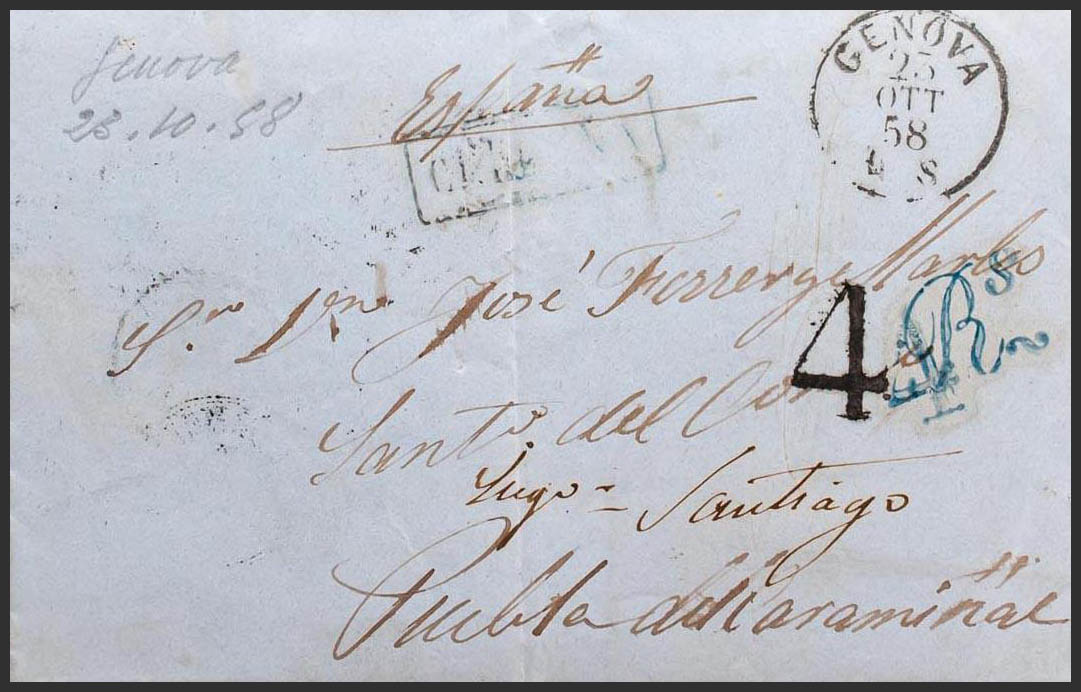 Genova
23.10.58
España
GENOVA
23
OTT
58
S
Sr. Dn. José Ferrer y Marlés
4
4 Rs
Santa. del
Lugo = Santiago
Puebla del Caramiñal